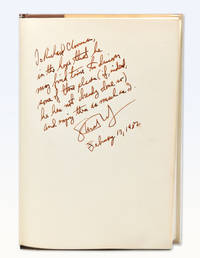 To Richard Clurman,
in the hope that he
may find time to discover
some of these places (if, indeed,
he has not already done so)
and enjoy them as much as I.
February 17, 1982